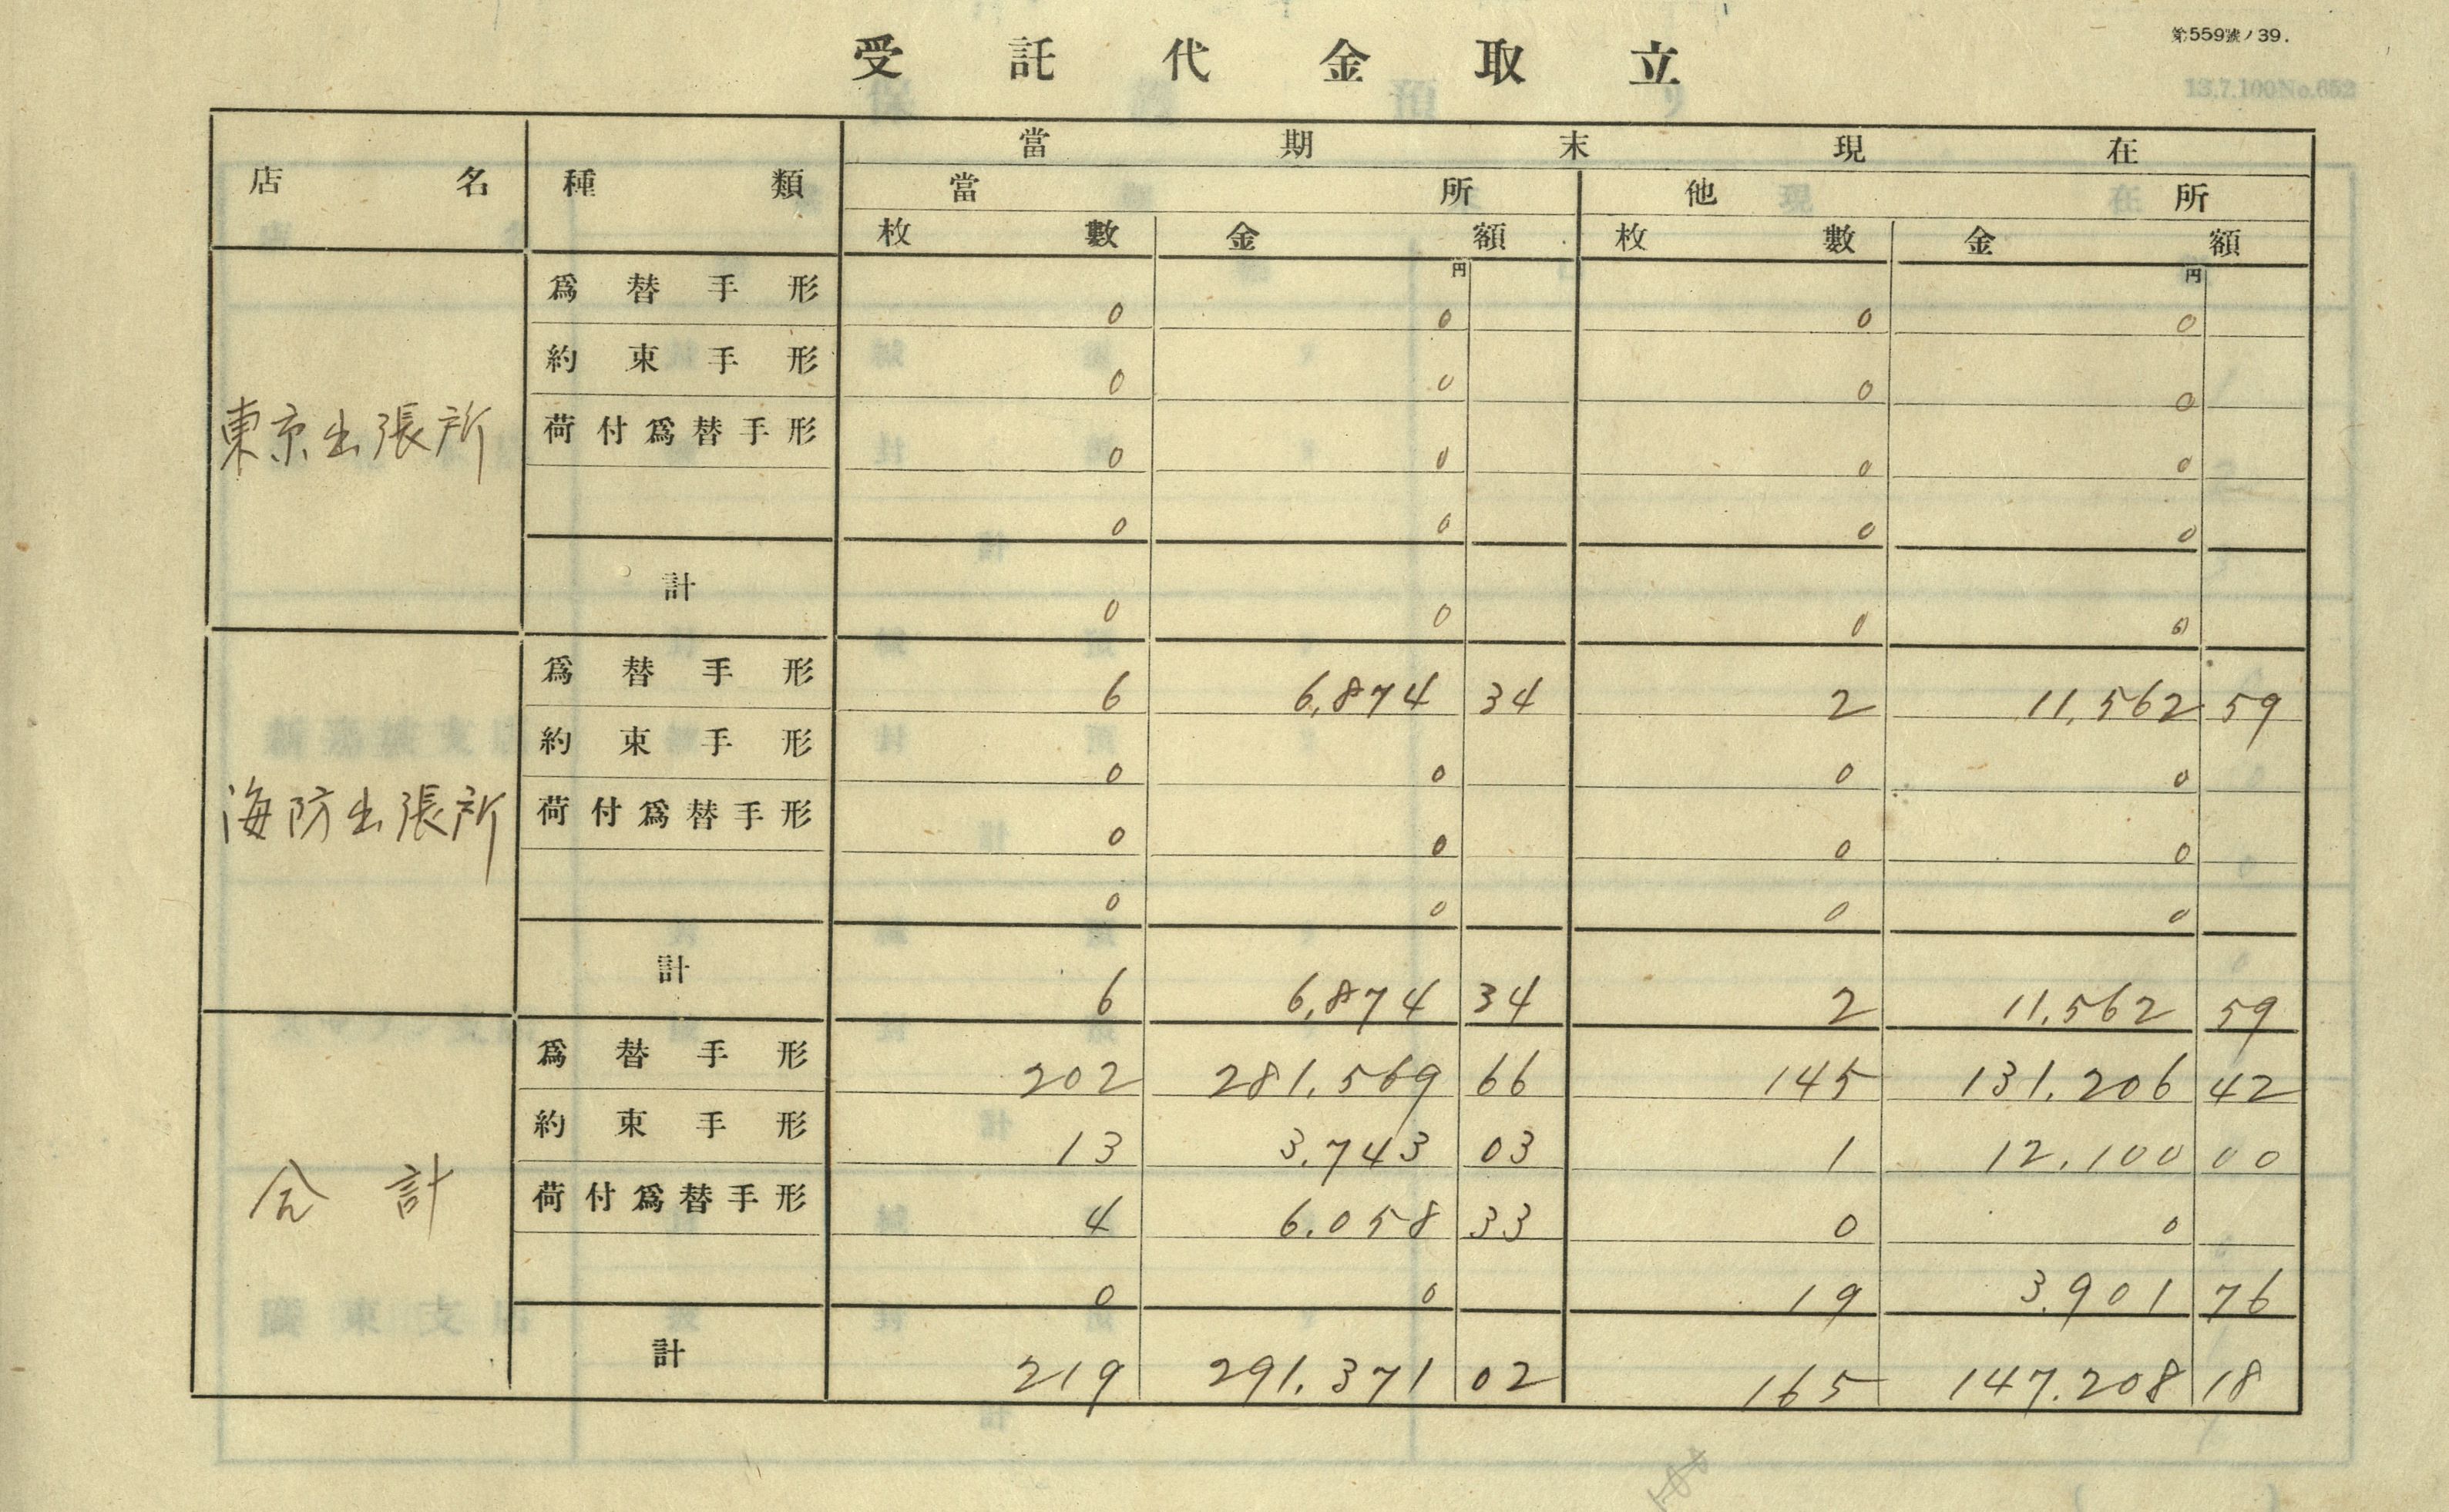 第559號ノ39.
受託代金取立
13.7.100No.652
店名 種類 當期末現在
當所 他所
枚數 金額 枚數 金額
円 円
東京出張所
爲替手形 0 0 0 0
約束手形 0 0 0 0
荷付爲替手形 0 0 0 0
0 0 0 0
計 0 0 0 0
海防出張所
爲替手形 6 6,874 34 2 11,562 59
約束手形 0 0 0 0
荷付爲替手形 0 0 0 0
0 0 0 0
計 6 6,874 34 2 11,562 59
合計
爲替手形 202 281,569 66 145 131,206 42
約束手形 13 3,743 03 1 12,100 00
荷付爲替手形 4 6,058 33 0 0
0 0 19 3,901 76
計 219 291,371 02 165 147,208 18